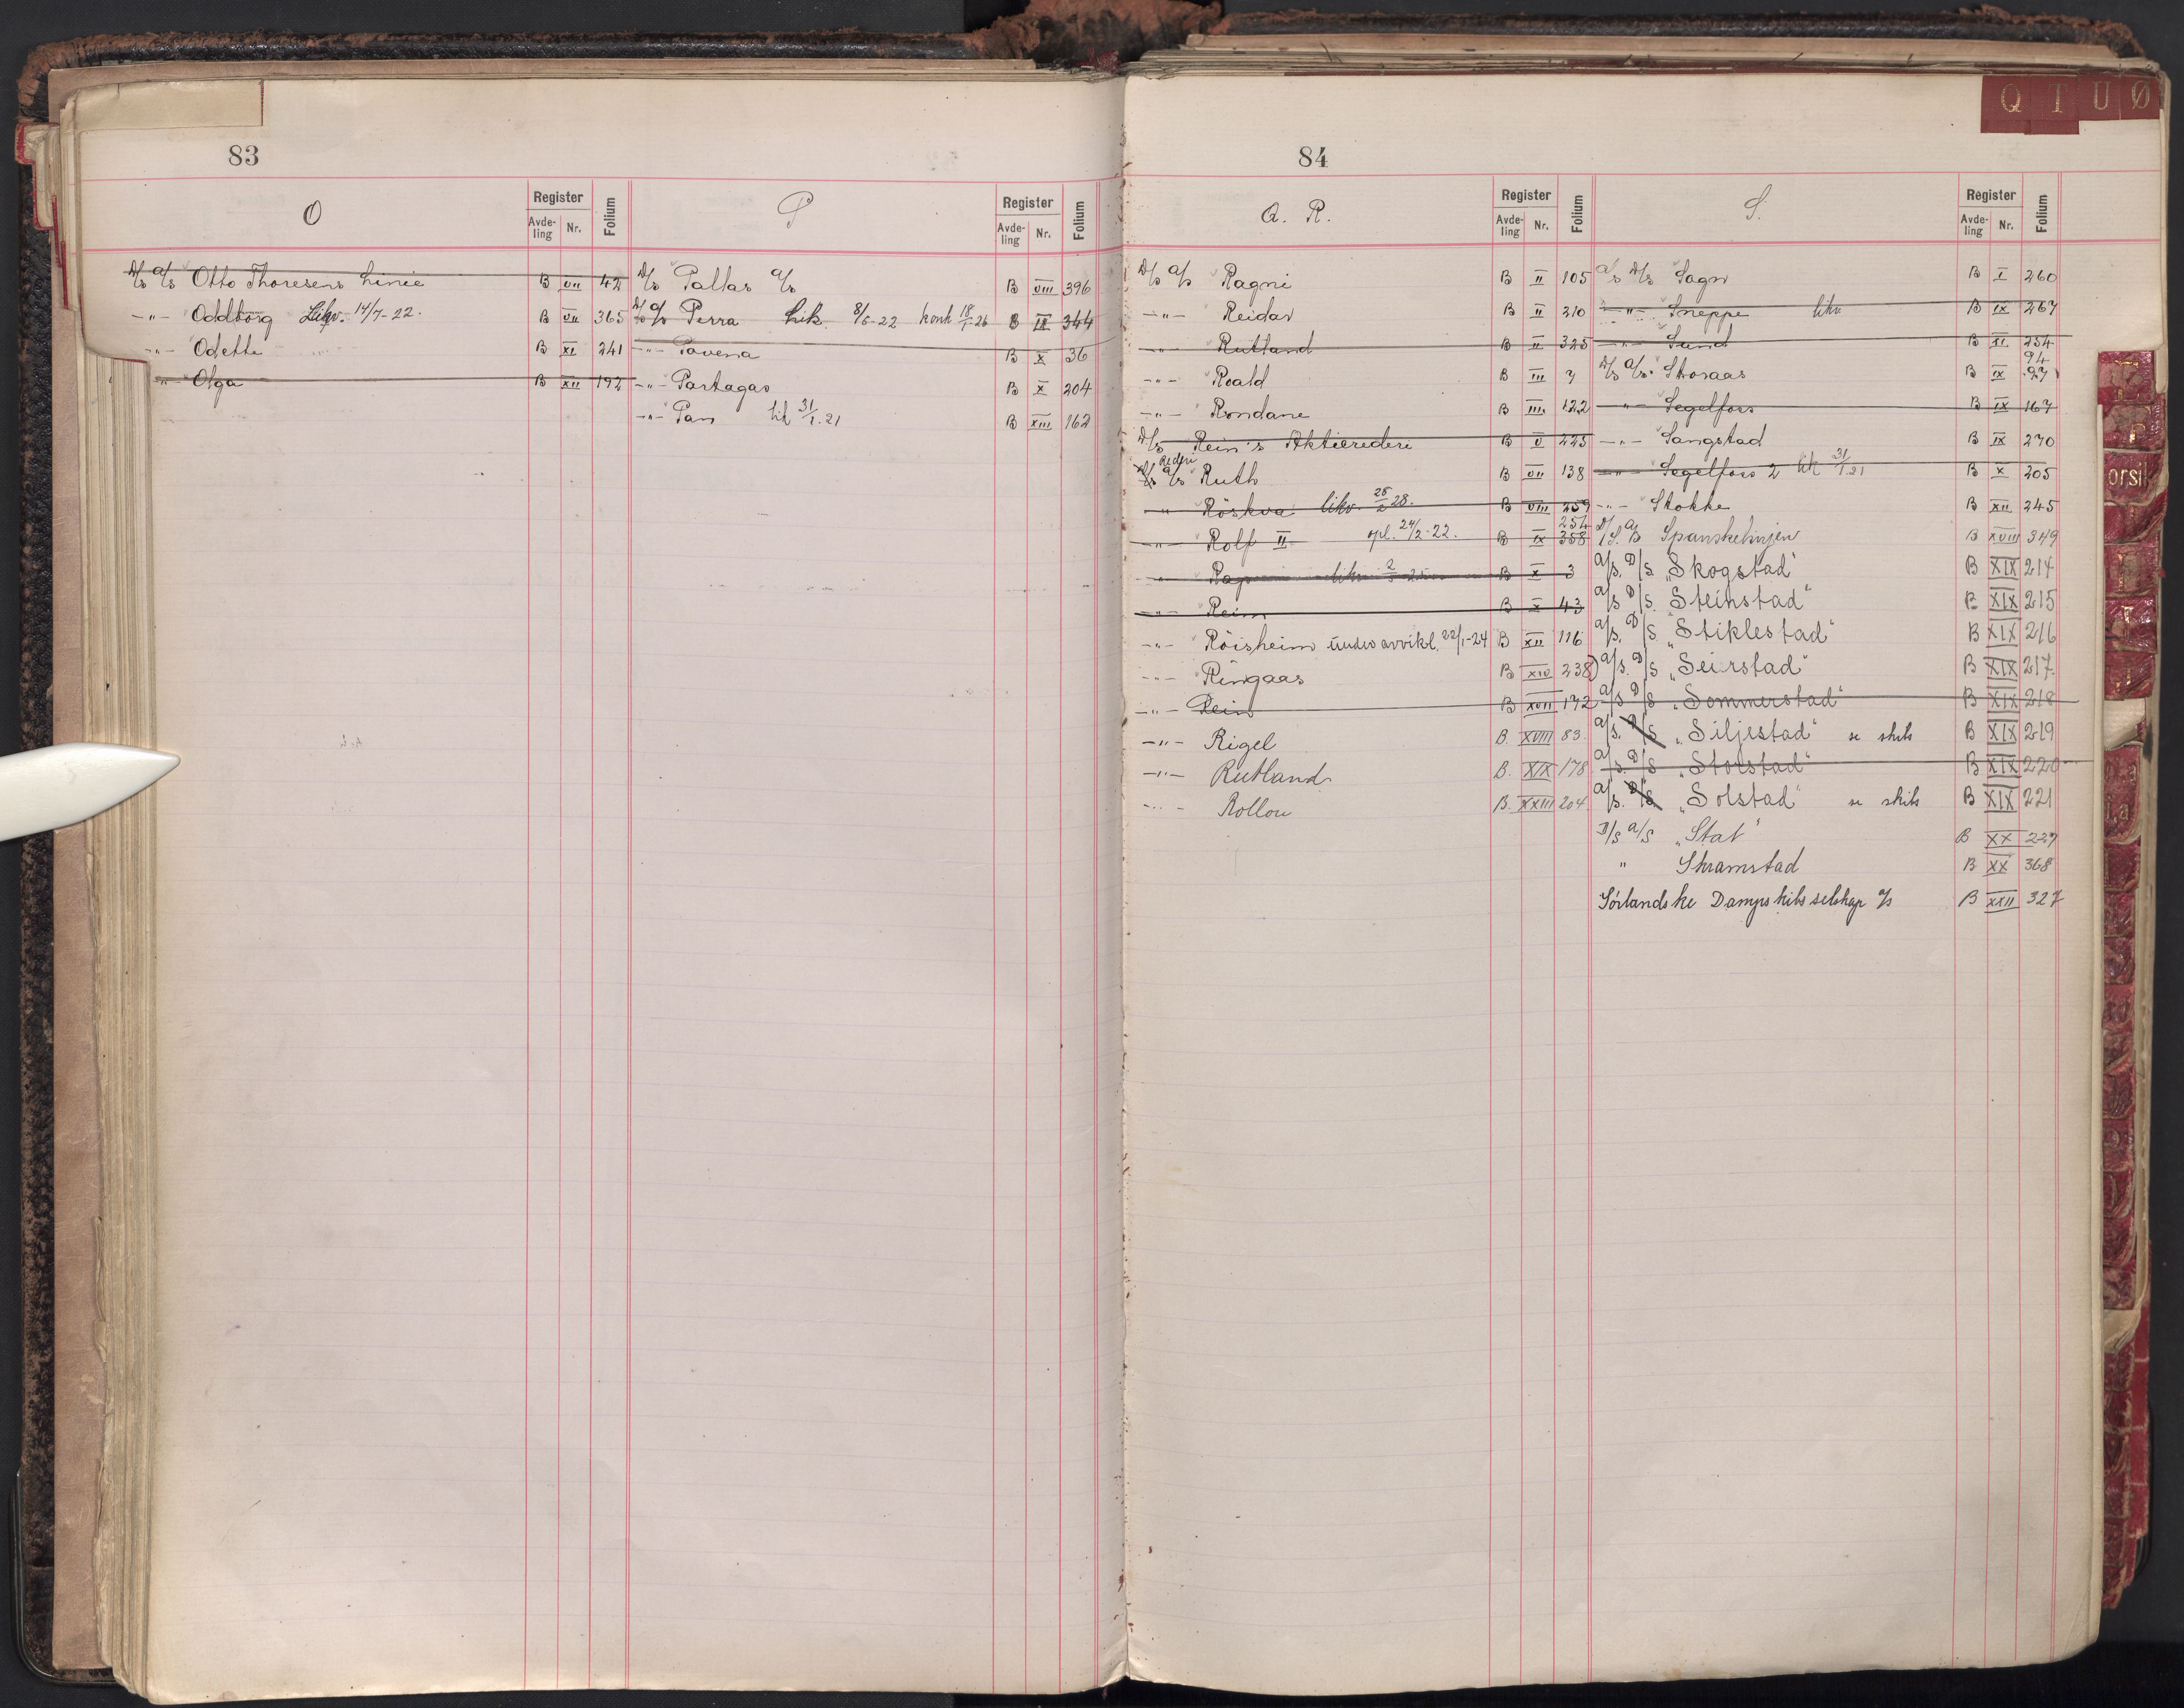 83
O
Register
Avde-
ling
Nr.
Folium
D/s A/s Otto Thoresens Linie B VII 42
-"- Oddborg Likv. 14/7-22. B VII 365
-"- Odette B XI 241
-"- Olga B XII 192
P
Register
Avde-
ling
Nr.
Folium
D/s Pallas A/s B VIII 396
D/s A/s Perra Lik. 8/5-22 konk 18/1-26 B IX 344
-"- Pavena B X 36
-"- Partagas B X 204
-"- Pan lik 31/1.21 B XIII 162
84
Q. R.
Register
Avde-
ling
Nr.
Folium
D/s A/s Ragni B II 105
-"- Reidar B II 210
-"- Rutland B II 325
-"- Roald B III 7
-"- Rondane B III 122
D/s Rein's Aktierederi B V 225
Rederi
D/s A/s Ruth B VII 138
-"- Röskva likv. 25/2 28. B VIII 259
254
-"- Rolf II opl. 24/2-22. B IX 358
-"- Rap likv B X 3
-"- Reim B X 43
-"- Röisheim under avvikl. 22/1-24 B XII 116
-"- Ringaas B XIV 238
-"- Rein B XVII 172
-"- Rigel B. XVIII 83.
-"- Rutland B. XIX 178
-"- Rollon B. XXIII 204
S.
Register
Avde-
ling
Nr.
Folium
A/s D/s Sagn B I 260
-"- Sneppe likv B IX 267
-"- Sund B XI 254
94
D/s A/s Storaas B IX 97
-"- Segelfors B IX 167
-"- Sangstad B IX 270
-"- Segelfors 2 lik 31/1 21 B X 205
-"- Stokke B XII 245
D/S. A/S Spanskelinjen B XVIII 349
A/S. D/S. „Skogstad" B XIX 214
A/S D/S. „Steinstad" B XIX 215
A/S. D/S „Stiklestad" B XIX 216
A/S. D/S „Seierstad" B XIX 217.
A/S D/S „Sommerstad" B XIX 218
A/S. D/S „Siljestad" se skibs B XIX 219
A/S. D/S „Storstad" B XIX 220
A/S. D/S. „Solstad" se skibs B XIX 221
D/S A/S „Stat" B XX 227
" Skramstad B XX 368
Sörlandske Dampskibsselskap A/s B XXII 327
Q T U Ø